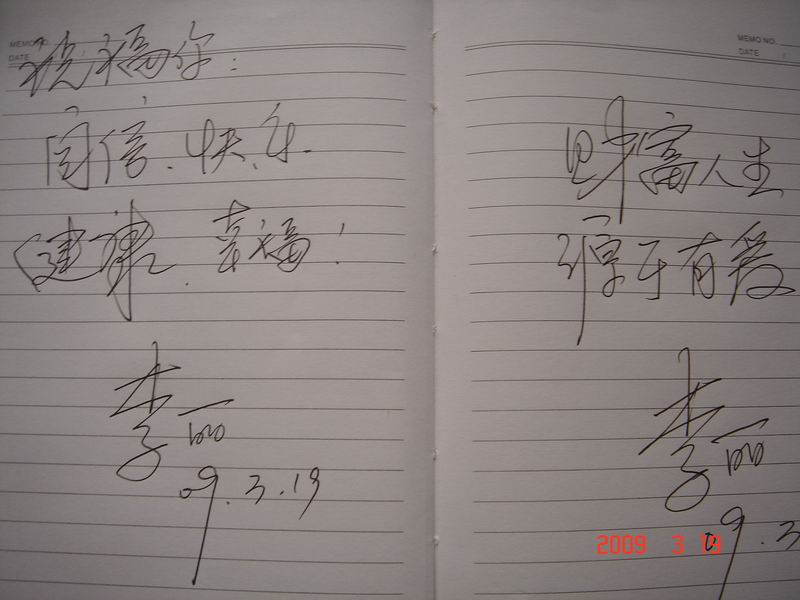 MEMO NO.
DATE
祝福你:
自信、快乐.
健康、幸福!
李丽
09.3.19
MEMO NO.
DATE
财富人生
源于有爱
李丽
09.3
2009 3 19